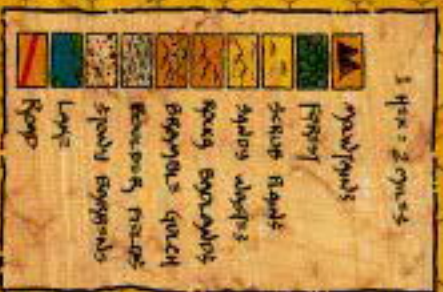 1 HEX = 2 MILES
MOUNTAINS
FOREST
SCRUB PLAINS
SANDY WASTES
ROCKY BADLANDS
BRAMBLE GULCH
BOULDER FIELDS
STONY BARRENS
LAKE
ROAD